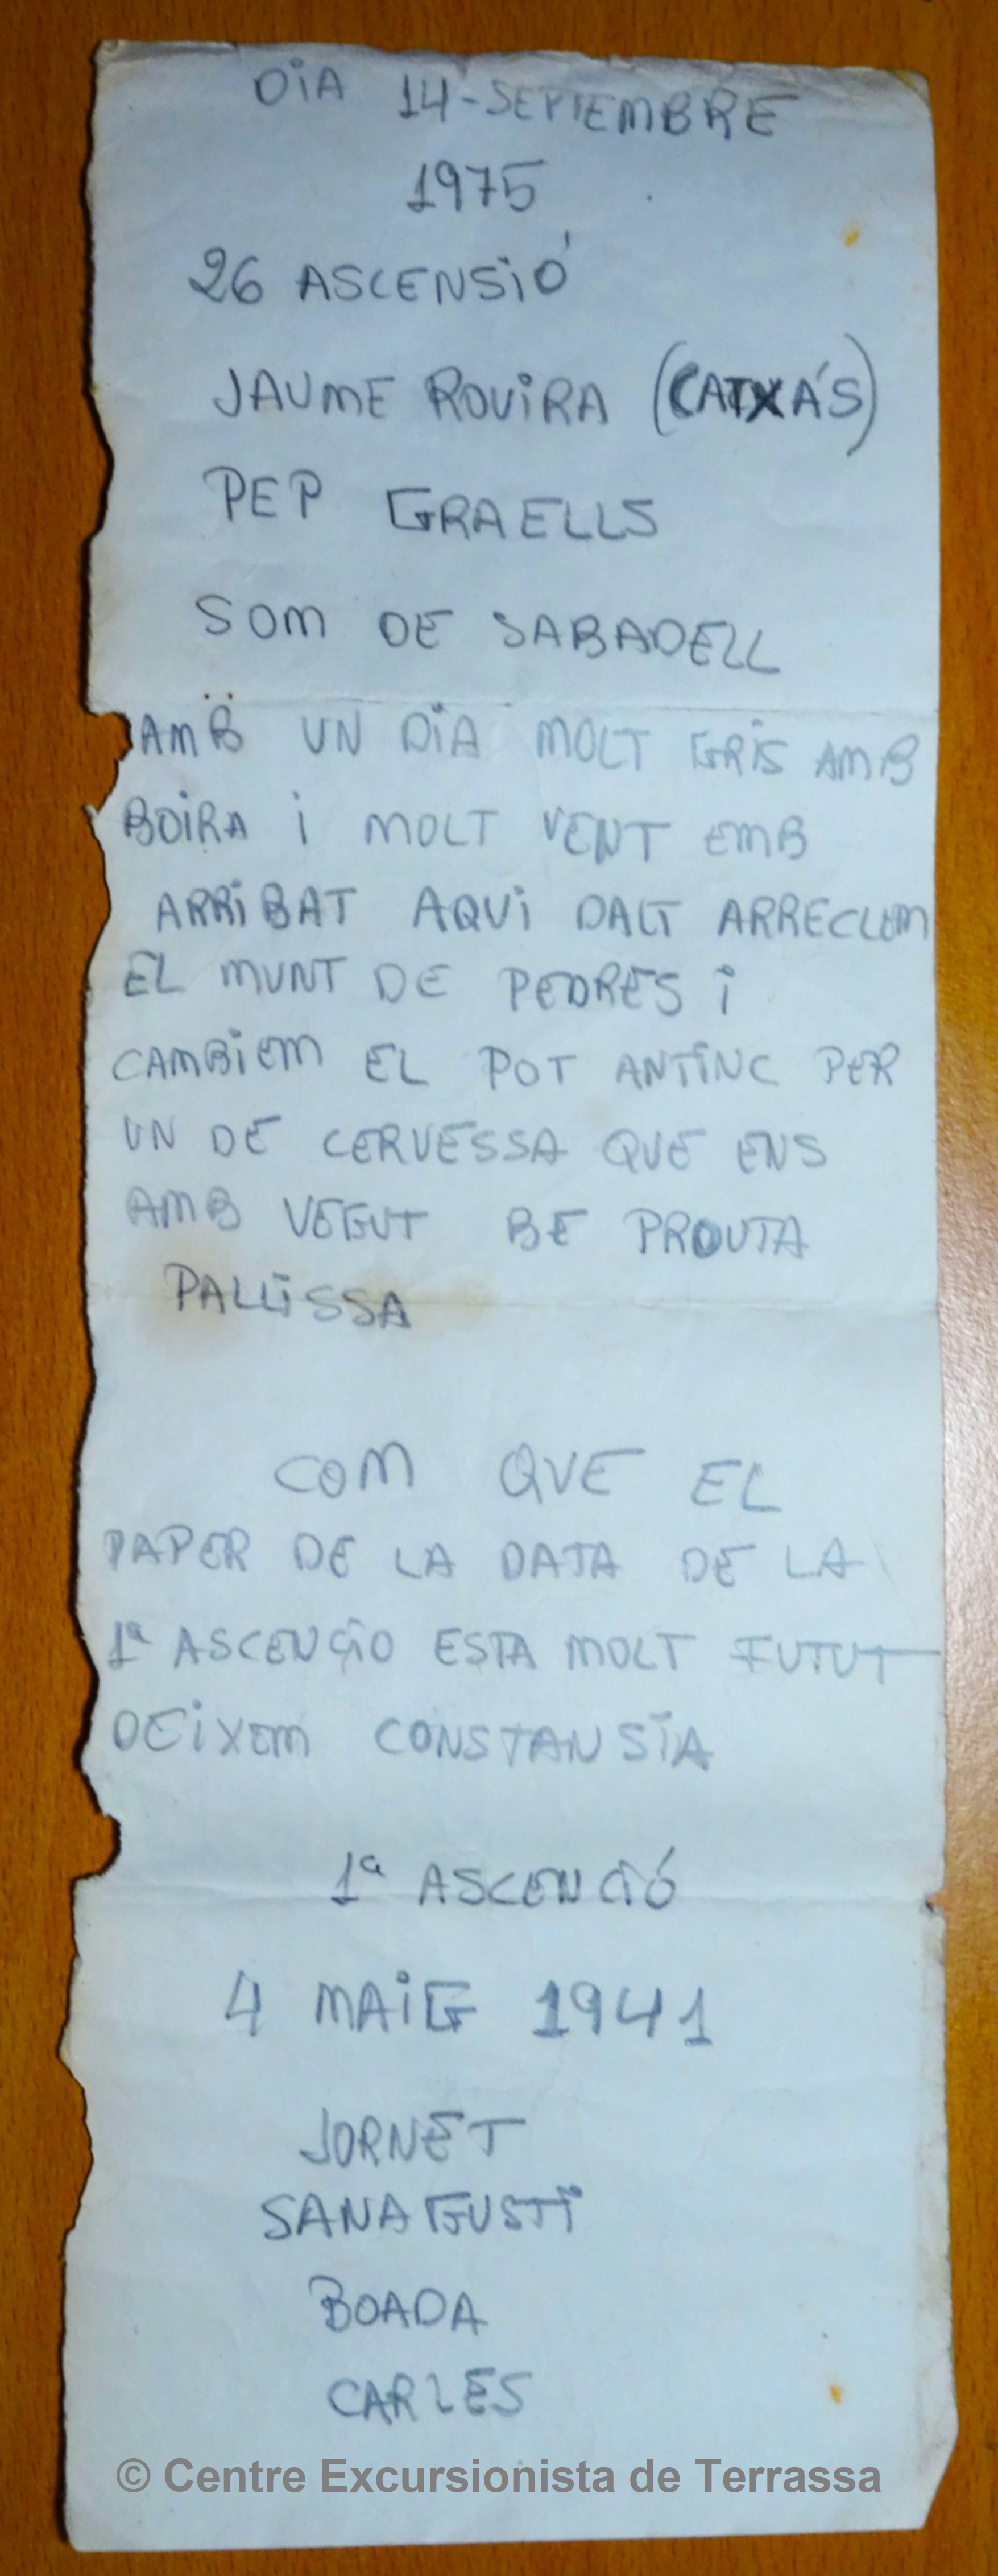 DiA 14-SEPTEMBRE
1975
26 ASCENSiÓ
JAUME ROViRA (CATXÁS)
PEP GRAELLS
SOM DE SABADELL
AMB UN DiA MOLT GRiS AMB
BOiRA i MOLT VENT EMB
ARRiBAT AQUi DALT ARRECLEM
EL MUNT DE PEDRES i
CAMBiEM EL POT ANTiNC PER
UN DE CERVESSA QUE ENS
AMB VEGUT BE PROUTA
PALLiSSA
COM QUE EL
PAPER DE LA DATA DE LA
1ª ASCENÇiO ESTA MOLT FUTUT
DEiXEM CONSTANSiA
1ª ASCENCiÓ
4 MAiG 1941
JORNET
SANAGUSTi
BOADA
CARLES
© Centre Excursionista de Terrassa